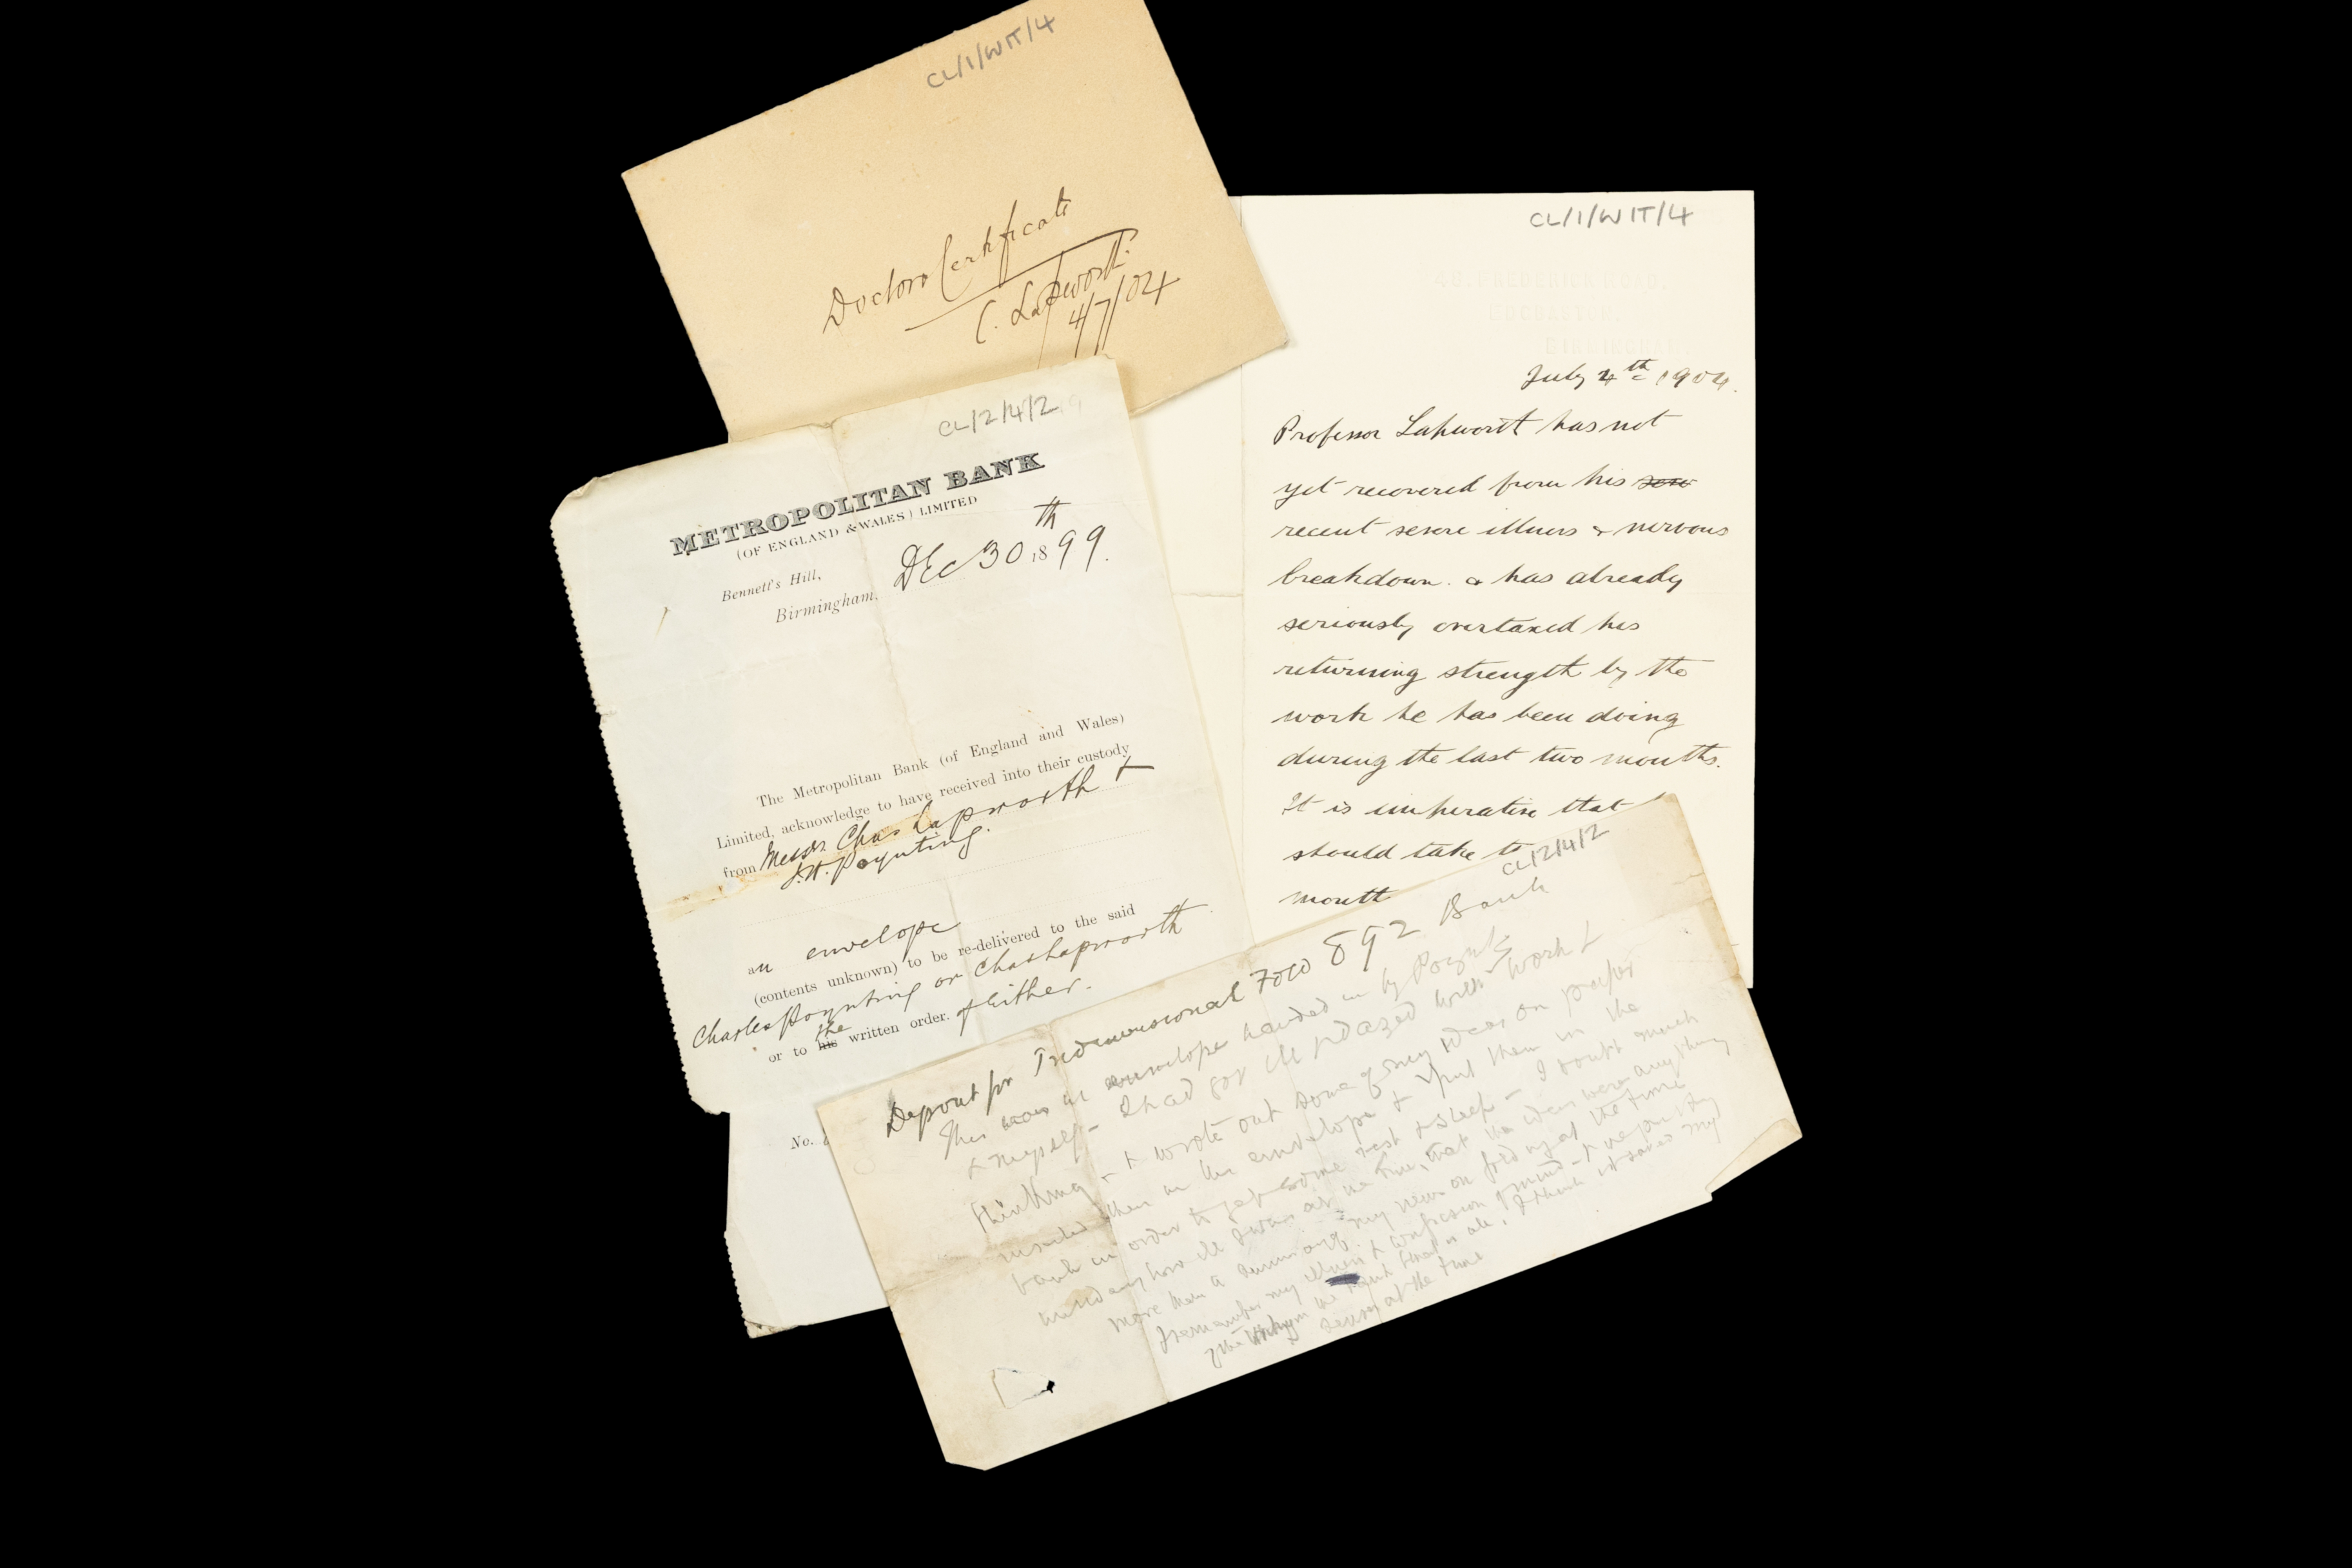 CL/1/WIT/4
Doctors Certificate
C. Lapworth
4/7/04
CL/2/4/2
METROPOLITAN BANK
(OF ENGLAND & WALES) LIMITED
Bennett's Hill,
Birmingham, Dec 30th 1899.
The Metropolitan Bank (of England and Wales)
Limited, acknowledge to have received into their custody
from Messrs Chas Lapworth &
J.H. Poynting.
an envelope
(contents unknown) to be re-delivered to the said
Charles Poynting or Chas Lapworth
or to his the written order. of Either.
No.
CL/1/WIT/4
FREDERICK ROAD,
EDGBASTON,
BIRMINGHAM.
July 4th 1904.
Professor Lapworth has not
yet recovered from his seve
recent severe illness & nervous
breakdown. & has already
seriously overtaxed his
returning strength by the
work he has been doing
during the last two months.
It is imperative that
should take
month
CL/2/4/2
Deposit for Tridimensional Fold 892 Bank
This was an envelope handed in by Poynting
& myself – I had got ill & dazed with work &
thinking – & wrote out some of my ideas on paper
them in the envelope & put them in the
bank in order to get some rest & sleep – I doubt much
how ill I was at the time, that the ideas were anything
more than a summary of my views on folding at the time
I remember my illness & confusion of mind –
that is all. I think it saved my
at the time